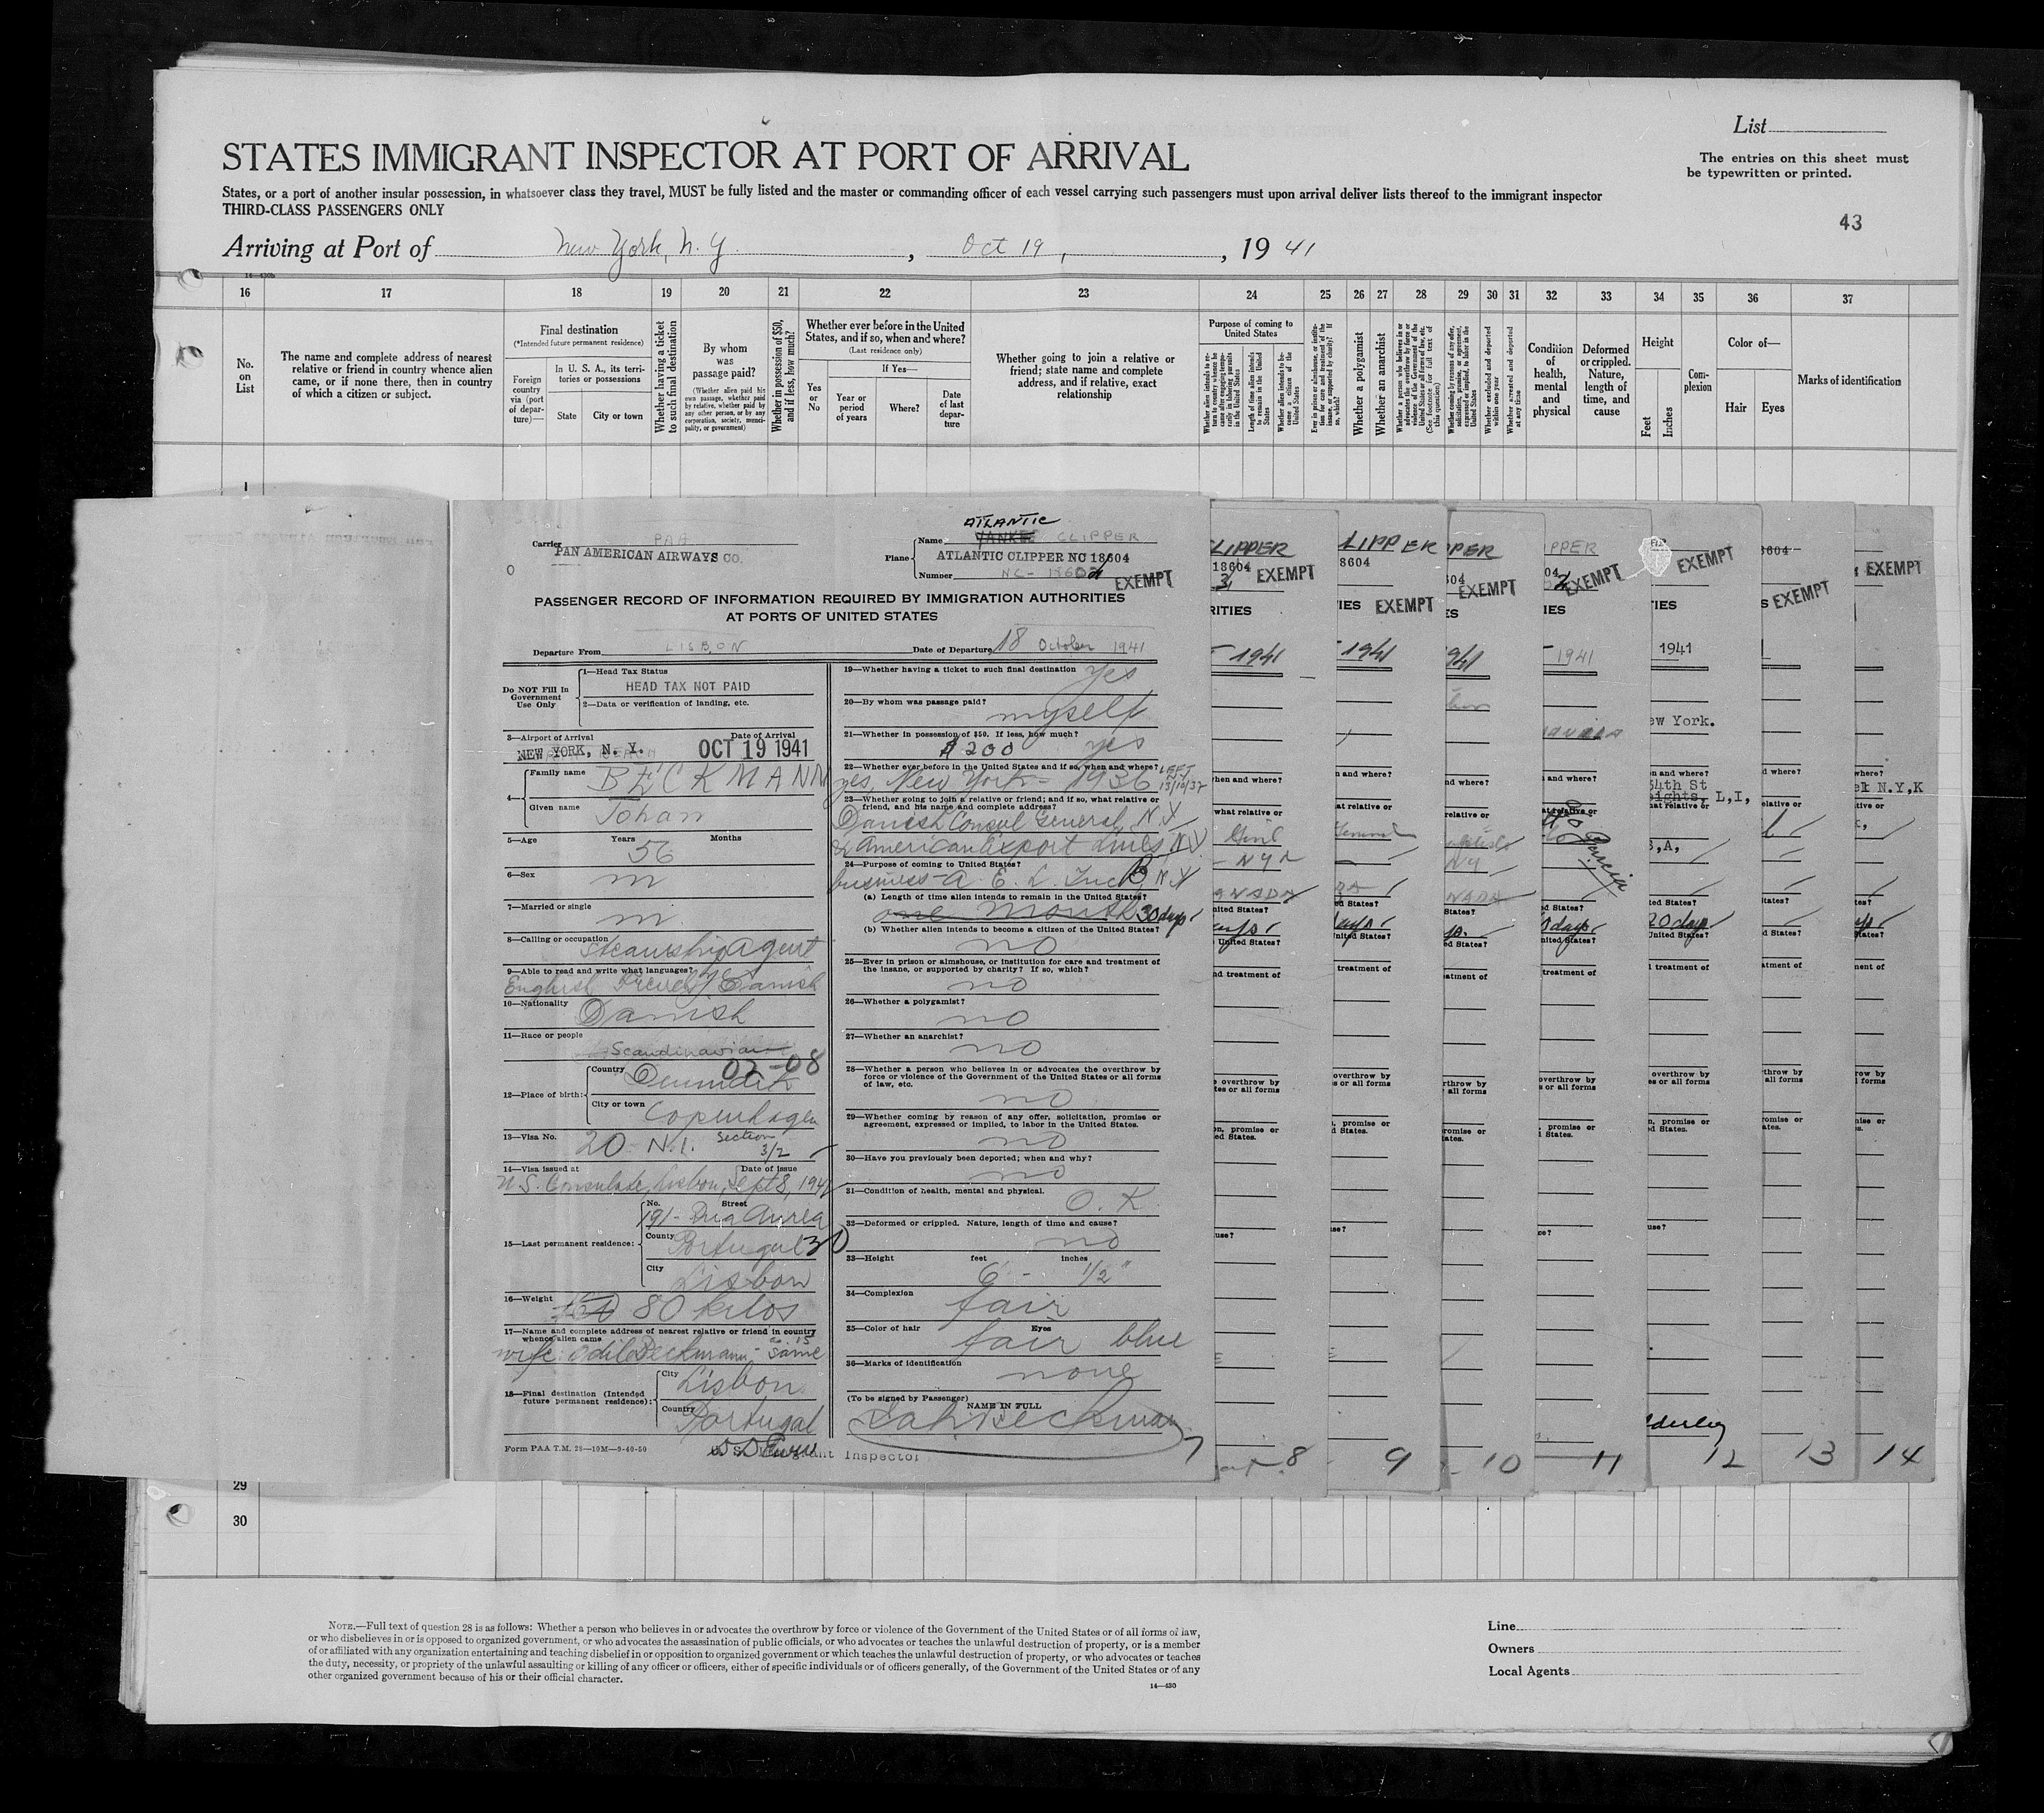 List
STATES IMMIGRANT INSPECTOR AT PORT OF ARRIVAL
The entries on this sheet must
be typewritten or printed.
States, or a port of another insular possession, in whatsoever class they travel, MUST be fully listed and the master or commanding officer of each vessel carrying such passengers must upon arrival deliver lists thereof to the immigrant inspector
THIRD-CLASS PASSENGERS ONLY
43
Arriving at Port of New York, N. Y., Oct 19, 1941
16 17 18 19 20 21 22 23 24 25 26 27 28 29 30 31 32 33 34 35 36 37
No. on List
The name and complete address of nearest
relative or friend in country whence alien
came, or if none there, then in country
of which a citizen or subject.
Final destination
(*Intended future permanent residence)
Foreign country via (port of departure)—
In U. S. A., its territories or possessions
State
City or town
Whether having a ticket to such final destination
By whom was passage paid?
(Whether alien paid his own passage, whether paid by relative, whether paid by any other person, or by any corporation, society, municipality, or government)
Whether in possession of $50, and if less, how much?
Whether ever before in the United States, and if so, when and where?
(Last residence only)
Yes or No
If Yes—
Year or period of years
Where?
Date of last departure
Whether going to join a relative or
friend; state name and complete
address, and if relative, exact
relationship
Purpose of coming to United States
Length of time alien intends to remain in the United States
Whether alien intends to become a citizen of the United States
Whether a polygamist
Whether an anarchist
Whether excluded and deported within one year
Whether arrested and deported at any time
Condition of health, mental and physical
Deformed or crippled. Nature, length of time, and cause
Height
Feet
Inches
Complexion
Color of—
Hair
Eyes
Marks of identification
1
ATLANTIC
Carrier PAA
PAN AMERICAN AIRWAYS CO.
Plane
Name YANKEE CLIPPER
ATLANTIC CLIPPER NC 18604
Number NC-18604
EXEMPT
PASSENGER RECORD OF INFORMATION REQUIRED BY IMMIGRATION AUTHORITIES
AT PORTS OF UNITED STATES
Departure From LISBON
Date of Departure 18 October 1941
Do NOT Fill In Government Use Only
1—Head Tax Status
HEAD TAX NOT PAID
2—Data or verification of landing, etc.
3—Airport of Arrival
NEW YORK, N. Y.
Date of Arrival
OCT 19 1941
4—
Family name BECKMANN
Given name Johan
5—Age Years Months
56
6—Sex
m
7—Married or single
m.
8—Calling or occupation
Steamship Agent
9—Able to read and write what languages?
English French & Danish
10—Nationality
Danish
11—Race or people
Scandinavian
02-08
12—Place of birth:
Country Denmark
City or town Copenhagen
13—Visa No.
20 N.I. Section 3/2
14—Visa issued at Date of issue
U.S. Consulate, Lisbon, Sept 8, 1941
15—Last permanent residence:
No. Street
191 - Rua Aurea
County
Portugal 30
City
Lisbon
16—Weight
80 kilos
17—Name and complete address of nearest relative or friend in country
whence alien came
wife: Odile Beckmann - same as 15
18—Final destination (Intended
future permanent residence):
City
Lisbon
Country
Portugal
Form PAA T.M. 28—10M—9-40-50
Immigrant Inspector
19—Whether having a ticket to such final destination
yes
20—By whom was passage paid?
myself
21—Whether in possession of $50. If less, how much?
$200 yes
22—Whether ever before in the United States and if so, when and where?
yes, New York - 1936 LEFT N.Y. 13/10/37
23—Whether going to join a relative or friend; and if so, what relative or
friend, and his name and complete address?
Danish Consul General, N.Y.
& American Export Lines, N.Y.
24—Purpose of coming to United States?
business - A. E. L. Inc. B N.Y.
(a) Length of time alien intends to remain in the United States?
one month 30 days
(b) Whether alien intends to become a citizen of the United States?
no
25—Ever in prison or almshouse, or institution for care and treatment of
the insane, or supported by charity? If so, which?
no
26—Whether a polygamist?
no
27—Whether an anarchist?
no
28—Whether a person who believes in or advocates the overthrow by
force or violence of the Government of the United States or all forms
of law, etc.
no
29—Whether coming by reason of any offer, solicitation, promise or
agreement, expressed or implied, to labor in the United States.
no
30—Have you previously been deported; when and why?
no
31—Condition of health, mental and physical.
O. K.
32—Deformed or crippled. Nature, length of time and cause?
no
33—Height feet inches
6 - 1/2"
34—Complexion
fair
35—Color of hair Eyes
fair blue
36—Marks of identification
none
(To be signed by Passenger)
NAME IN FULL
Joh. Beckmann
7
CLIPPER
18604
EXEMPT
1941
8
LIPPER
8604
EXEMPT
1941
9
PPER
EXEMPT
941
10
PPER
EXEMPT
1941
Garcia
11
EXEMPT
1941
ew York.
54th St
eights, L,I,
20 days
12
8604
EXEMPT
13
EXEMPT
N.Y,K
14
29
30
NOTE.—Full text of question 28 is as follows: Whether a person who believes in or advocates the overthrow by force or violence of the Government of the United States or of all forms of law,
or who disbelieves in or is opposed to organized government, or who advocates the assassination of public officials, or who advocates or teaches the unlawful destruction of property, or is a member
of or affiliated with any organization entertaining and teaching disbelief in or opposition to organized government or which teaches the unlawful destruction of property, or who advocates or teaches
the duty, necessity, or propriety of the unlawful assaulting or killing of any officer or officers, either of specific individuals or of officers generally, of the Government of the United States or of any
other organized government because of his or their official character.
14—430
Line
Owners
Local Agents